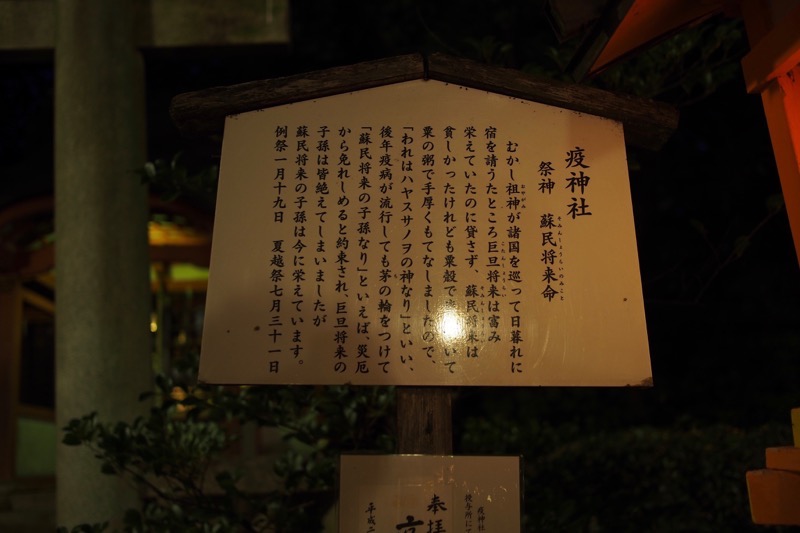 疫神社
祭神 蘇民将来命
むかし祖神が諸国を巡って日暮れに
宿を請うたところ巨旦将来は富み
栄えていたのに貸さず、蘇民将来は
貧しかったけれども粟殻で いて
粟の粥で手厚くもてなしましたので、
「われはハヤスサノヲの神なり」といい、
後年疫病が流行しても茅の輪をつけて
「蘇民将来の子孫なり」といえば、災厄
から免れしめると約束され、巨旦将来の
子孫は皆絶えてしまいましたが
蘇民将来の子孫は今に栄えています。
例祭一月十九日 夏越祭七月三十一日
疫神社
授与所に
奉拝
平成